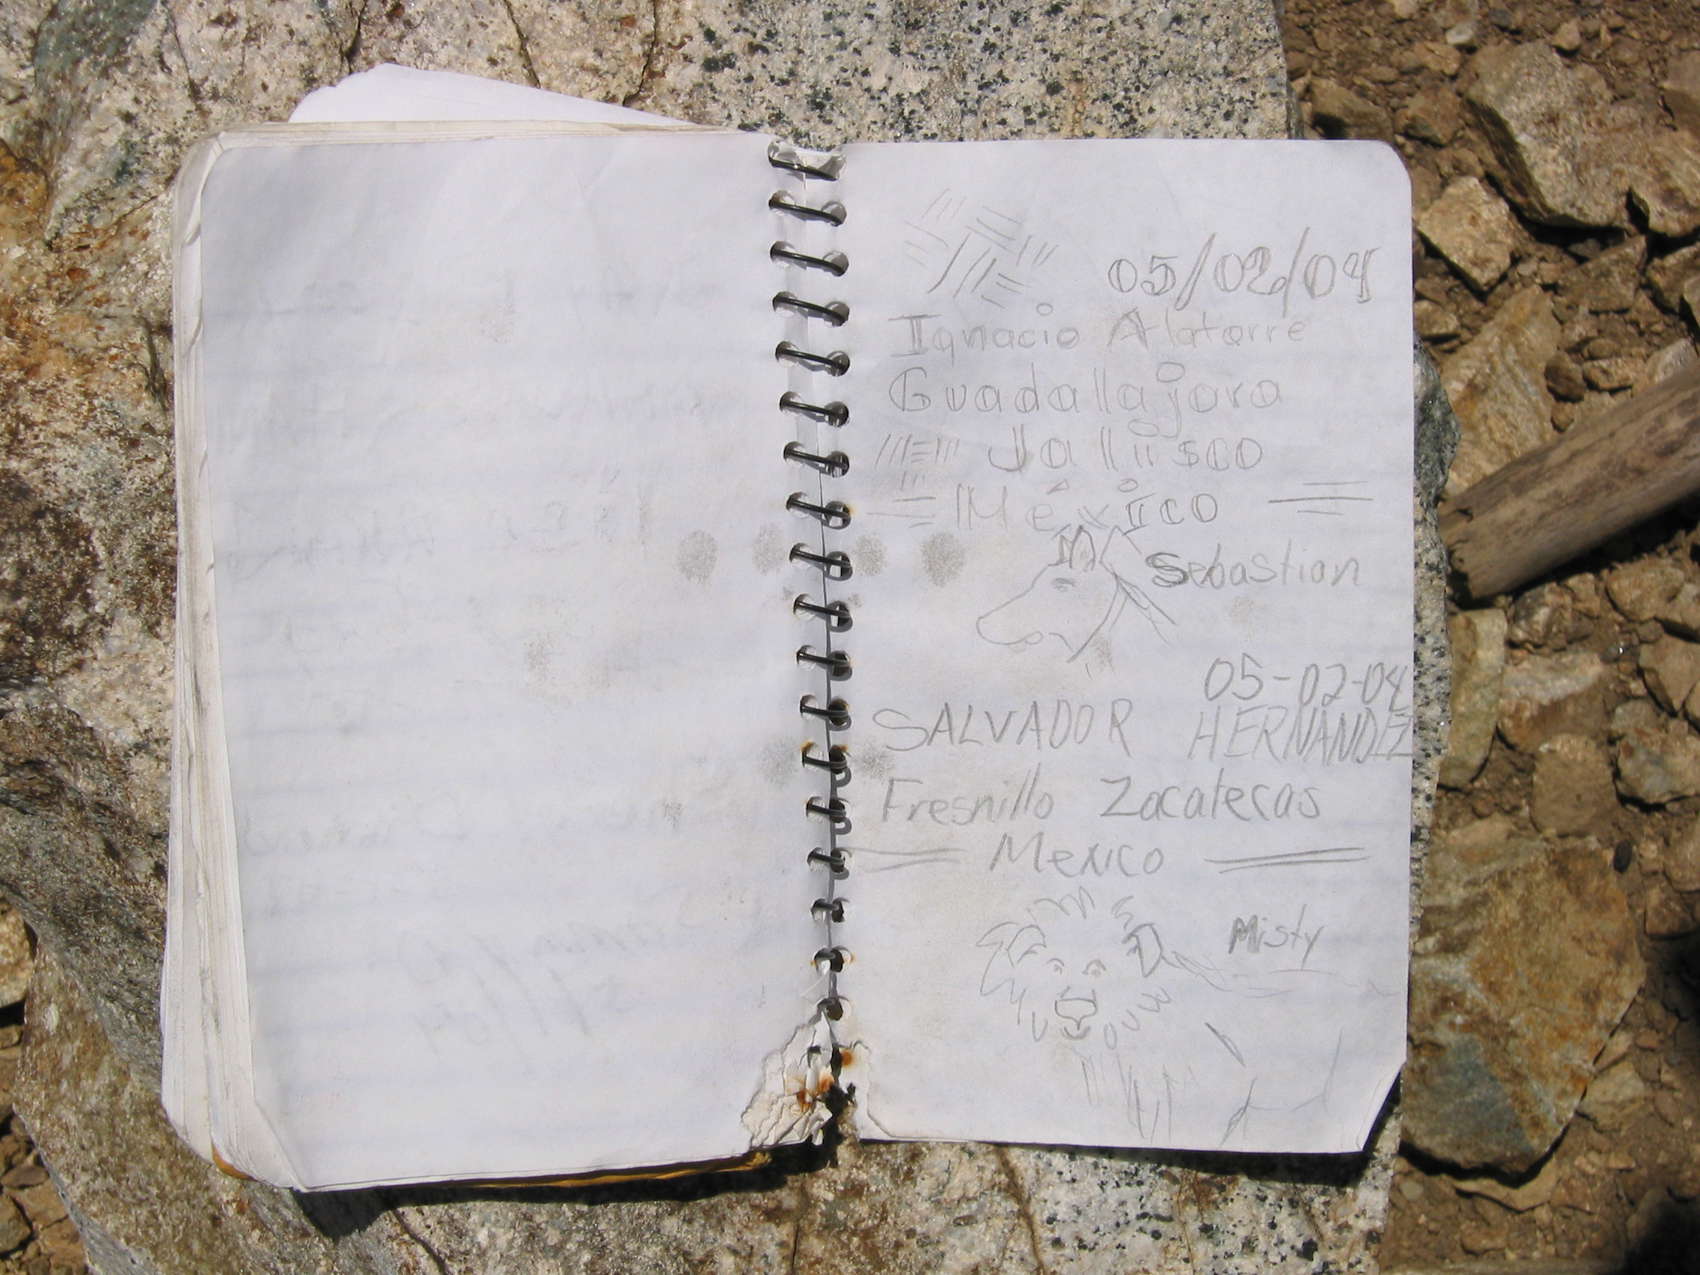 05/02/04
Ignacio Alatorre
Guadallajara
Jaliisco
México
Sebastian
05-02-04
SALVADOR HERNANDEZ
Fresnillo Zacatecas
Mexico
Misty